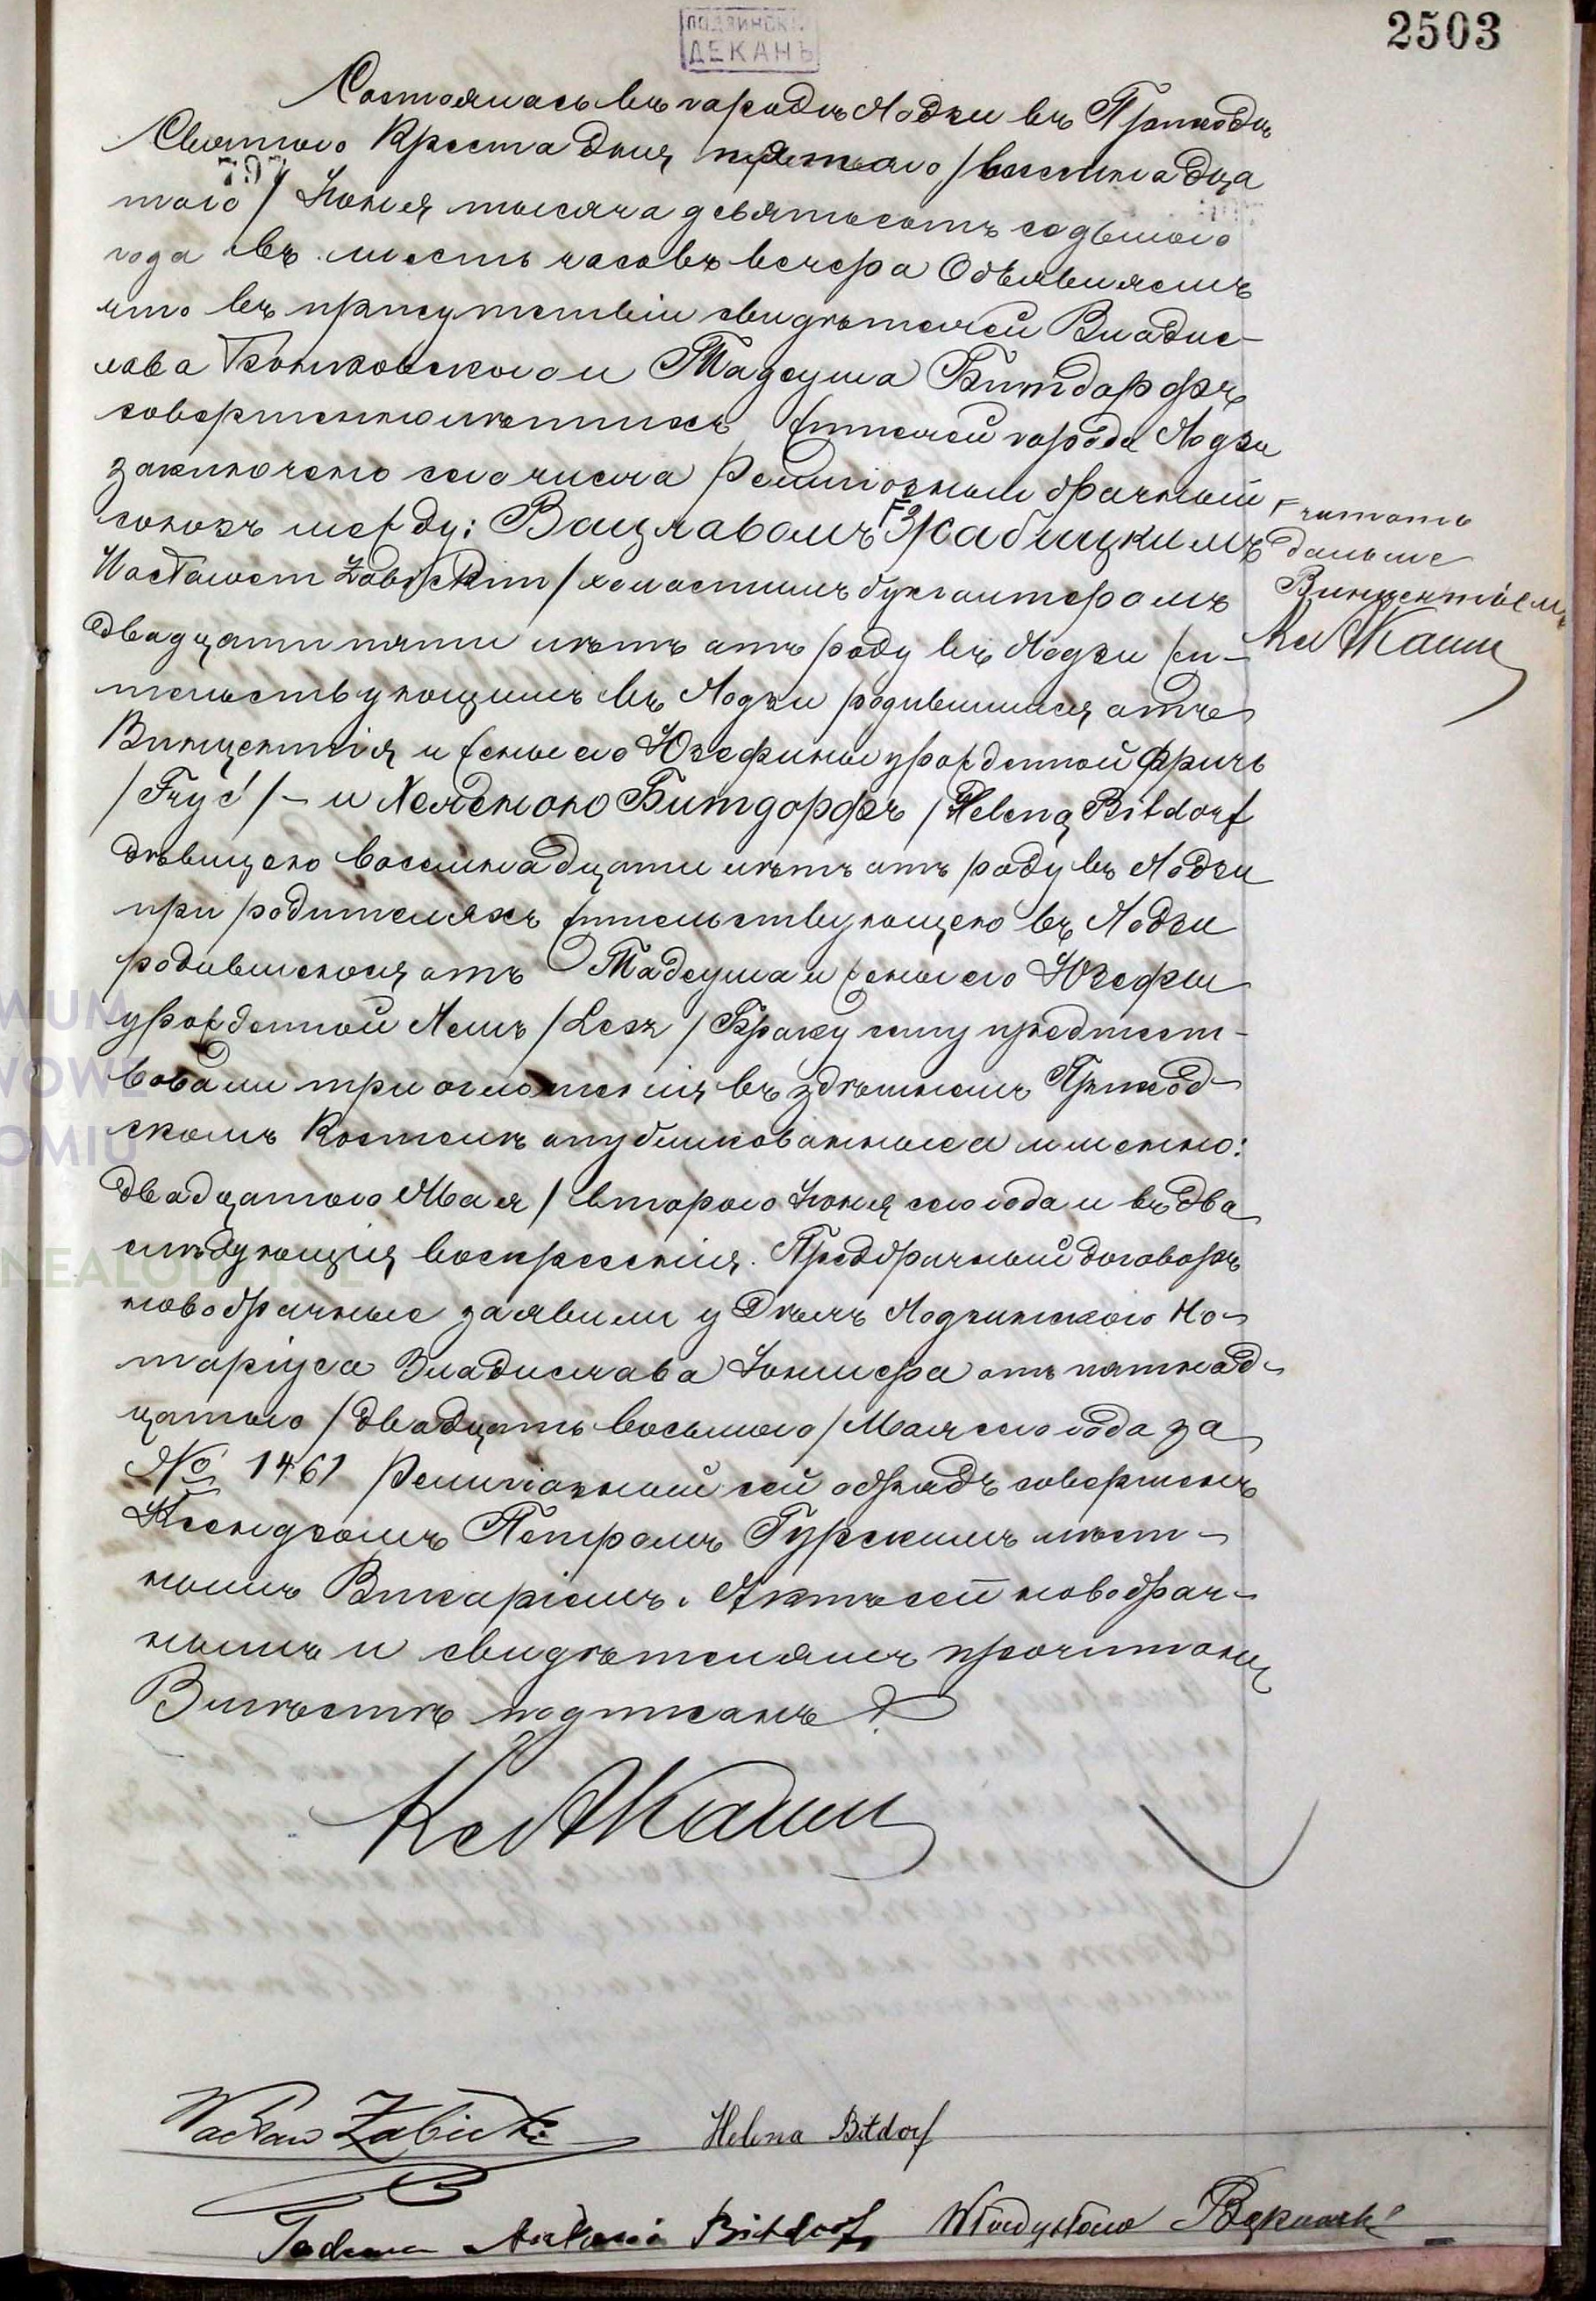 2503
ЛОДЗИНСКІЙ
ДЕКАНЪ
Состоялась въ городѣ Лодзи въ Приходѣ
Святого Креста дня пятаго / восемнадца
797
таго / Іюня тысяча девятьсотъ седьмого
года въ шесть часовъ вечера Объявляемъ
что въ присутствіи свидѣтелей Владис-
лава Бонковского и Тадеуша Битдорфъ
совершеннолѣтнихъ жителей города Лодзи
заключено сего числа Религіозный брачный
союзъ между: Вацлавомъ Жабицкимъ
Wacławem Żabickim / холостымъ бухгалтеромъ
двадцати пяти лѣтъ отъ роду въ Лодзи жи-
тельствующимъ въ Лодзи родившимся отъ
Винцентія и жены его Юзефины урожденной Фричь
/ Fryć / – и Хеленою Битдорфъ / Heleną Bitdorf
дѣвицею восемнадцати лѣтъ отъ роду въ Лодзи
при родителяхъ жительствующею въ Лодзи
родившеюся отъ Тадеуша и жены его Юзефы
урожденной Лешъ / Lesz / Браку сему предшест-
вовали три оглашенія въ здѣшнемъ Приход-
скомъ Костелѣ опубликованные а именно:
двадцатого Мая / второго Іюня сего года и въ два
слѣдующія воскресенія. Предбрачный договоръ
новобрачные заявили у Дѣлъ Лодзинского Но-
таріуса Владислава Іоншера отъ пятнад-
цатого / двадцать восьмого / Мая сего года за
№ 1461 Религіозный сей обрядъ совершенъ
Ксендзомъ Петромъ Гурскимъ мѣст-
нымъ Викаріемъ. Актъ сей новобрач-
нымъ и свидѣтелямъ прочитанъ
Вмѣстѣ подписанъ
читать
дальше
Винцентіемъ
Wacław Żabicki Helena Bitdorf
Tadeusz Antoni Bitdorf Władysław Bąkowski